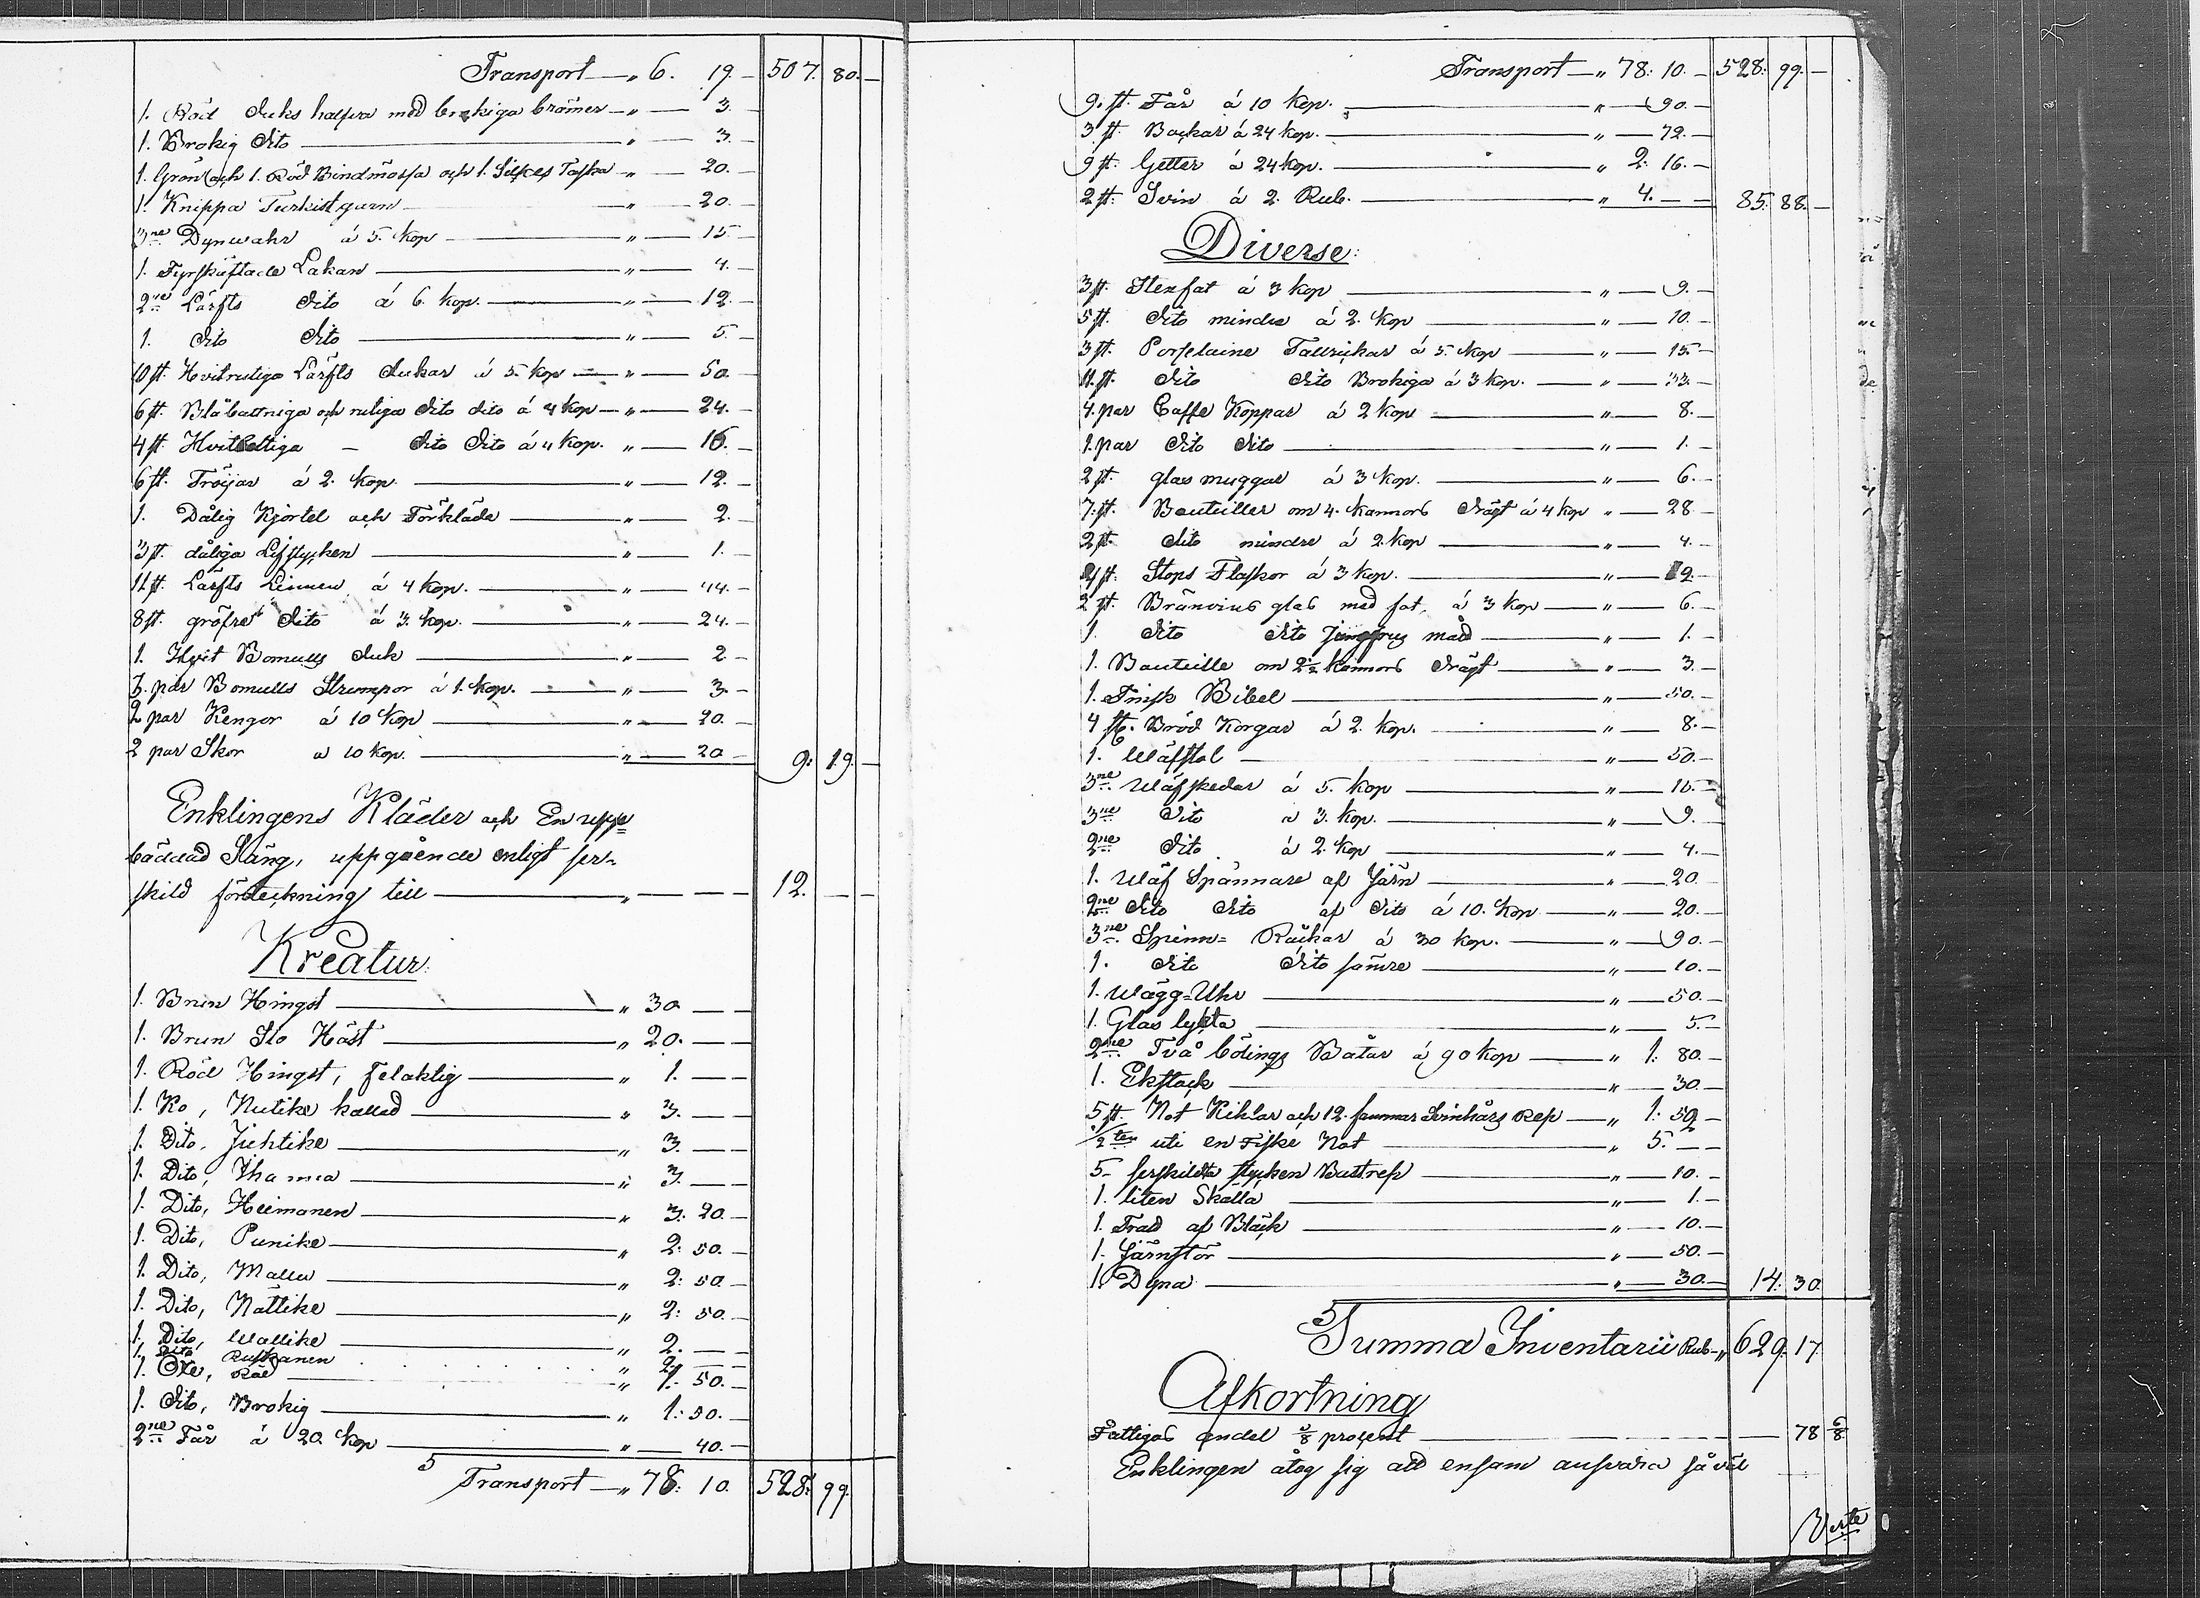 Transport — „ 6. 19. — 507. 80. —
1. Röd duks halfva med brokiga brämer — „ — 3. —
1. Brokig dito — „ — 3. —
1. Grön och 1. Röd Bindmössa och 1. Silkes Taska — „ — 20. —
1. Knippa Turkist garn — „ — 20. —
3ne Dynwahr á 5. kop — „ — 15 —
1. Fyrskäftade Lakan — „ — 4. —
2ne Lärfts dito á 6. kop. — „ — 12. —
1. dito dito — „ — 5. —
10 st. Hvitrutiga Lärfts dukar á 5. kop — „ — 50. —
6 st. Blåbattniga och rutiga dito dito á 4 kop — „ — 24. —
4 st Hvitbottiga — dito dito á 4 kop. „ — 16. —
6 st. Tröijor á 2. kop. — „ — 12. —
1. Dålig Kjortel och Förkläde — „ — 2. —
3 st. dåliga Lifstycken — „ — 1. —
11 st. Lärfts Linnen á 4 kop. — „ — 44. —
8 st. gröfre dito á 3. kop. — „ — 24. —
1. Hvit Bomulls duk — „ — 2 —
3. par Bomulls Strumpor á 1. kop. — „ — 3. —
2 par Kengor á 10 kop — „ — 20. —
2 par Skor a 10 kop. — „ — 20 — 9: 19. —
Enklingens Kläder och En upp=
bäddad Säng, uppgående enligt ser-
skild förteckning till — „ — — — 12. — —
Kreatur:
1. Brun Hingst — „ 30 — —
1. Brun Sto Häst — „ 20. — —
1. Röd Hingst, felaktig — „ 1. — —
1. Ko, Nutike kallad — „ 3. — —
1. Dito, Jichtike — „ 3. — —
1. Dito, Ihanna — „ 3. — —
1. Dito, Heimonen — „ 3: 20. —
1. Dito, Punike — „ 2: 50. —
1. Dito, Mallu — „ 2: 50 —
1. Dito, Nättike — „ 2: 50. —
1. Dito, Wallike — „ 2. — —
1. Dito Ruskanen „ 2. — —
1. Oxe, Röd — „ 1. 50. —
1. dito, Brokig — „ 1: 50. —
2ne Får á 20 kop — „ — 40. —
Transport — „ 78: 10. 528: 99.
Transport — „ 78: 10. — 528: 99. —
9. st. Får á 10 kop. — „ — 90. —
3 st. Bockar á 24 kop. — „ — 72. —
9 st. Getter á 24 kop. — „ 2: 16. —
2 st. Svin á 2. Rub. — „ 4. — — 85: 88. —
Diverse:
3 st. Stenfat á 3 kop — „ — 9. —
5 st. dito mindre á 2. kop — „ — 10. —
3 st. Porslaine Tallrickar á 5. kop — „ — 15 —
11. st. dito dito Brokiga á 3 kop. — „ — 33. —
4. par Caffe Koppar á 2 kop — „ — 8. —
1. par dito dito — „ — 1. —
2 st. glas muggar á 3 kop. — „ — 6. —
7. st. Bouteiller om 4. kannors drägt á 4 kop „ — 28 —
2 st. dito mindre á 2. kop — „ — 4. —
4 st. Stops Flaskor á 3 kop. — „ — 12. —
2 st. Bränvins glas med fot, á 3 kop — „ — 6. —
1. dito dito jungfrus mått — „ — 1. —
1. Bouteille om 2½ kannors drägt — „ — 3. —
1. Finsk Bibel — „ — 50. —
4 st. Bröd Korgar á 2. kop. — „ — 8. —
1. Wäfstol — „ — 50. —
3ne Wäfskedar á 5. kop — „ — 15. —
3ne Dito a 3. kop. — „ — 9. —
2ne dito á 2. kop — „ — 4. —
1. Wäf Spännare af Järn — „ — 20. —
2ne dito dito af dito á 10. kop — „ — 20. —
3ne Spinn= Råckar á 30 kop. — „ — 90. —
1. dito dito sämre — „ — 10. —
1. Wägg=Uhr — „ — 50. —
1. Glas lykta — „ — 5. —
2ne Två bölings Båtar á 90 kop — „ 1: 80. —
1. Ekstock — „ — 30. —
5 st. Not Kihlar och 12. famnar Svinhårs Rep — „ 1. 50 —
½ten uti en Fiske Not — „ 5. — —
5. serskildta stycken Bastrep — „ — 10. —
1. liten Skälla — „ — 1. —
1. Trad af Bläck — „ — 10. —
1. Järnstör — „ — 50. —
1. Dyna — „ — 30. — 14: 30.
Summa Inventarii Rub — „ 629. 17
Afkortning
Fattigas andel ⅛ procent — 78 6/8
Enklingen åtog sig att ensam ansvara så väl
Verte